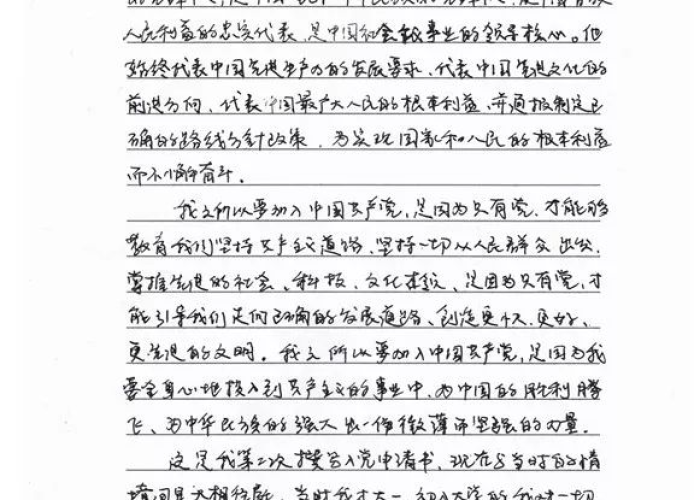 人民利益的忠实代表，是中国社会主义事业的领导核心。他
始终代表中国先进生产力的发展要求、代表中国先进文化的
前进方向、代表中国最广大人民的根本利益，并通过制定正
确的路线方针政策，为实现国家和人民的根本利益
而不懈奋斗。
我之所以要加入中国共产党，是因为只有党，才能够
教育我们坚持共产主义道路，坚持一切从人民群众出发，
掌握先进的社会、科技、文化本领，是因为只有党，才
能引导我们走向正确的发展道路、创造更快、更好、
更先进的文明。我之所以要加入中国共产党，是因为我
要全身心地投入到共产主义的事业中，为中国的胜利腾
飞、为中华民族的强大出一份微薄而坚强的力量。
这是我第二次撰写入党申请书，现在与当时的情
境可是大相径庭，当时我才大一，初入大学的我对一切